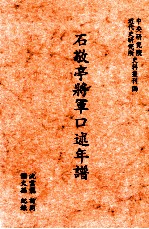 中央研究院
近代史研究所
史料叢刊
石敬亭將軍口述年譜
沈雲龍 訪問
謝文孫 紀錄